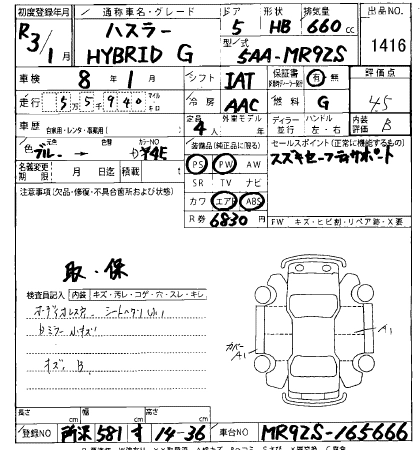 初度登録年月 通称車名・グレード ドア 形状 排気量 出品NO
R3/1月 ハスラー HYBRID G 5 HB 660cc 1416
型式 5AA-MR92S
車検 8年1月 シフト IAT 保証書 有 無 評価点
走行 55940 マイル キロ 冷房 AAC 燃料 G 4.5
車歴 自家用・レンタ・事業用( ) 定員 4人 外車モデル ディーラー 並行 ハンドル 左・右 内装評価 B
色 元色 ブルー → 色替 カラーNO 装備品(純正品に限る) セールスポイント(正常に機能するもの)
名義変更期限 月 日 積載 PS PW AW スズキセーフティサポート
注意事項(欠品・修復・不具合箇所および状態) SR TV ナビ
カワ エアB ABS
R券 6830円 FW キズ・ヒビ割・リペア跡・X要
取・保
検査員記入 内装 キズ・汚レ・コゲ・穴・スレ・キレ
オーディオレス
キズ B
カバー A1 A1
長さ cm 幅 cm 高さ cm
登録NO 所沢 581 す 14-36 車台NO MR92S-165666